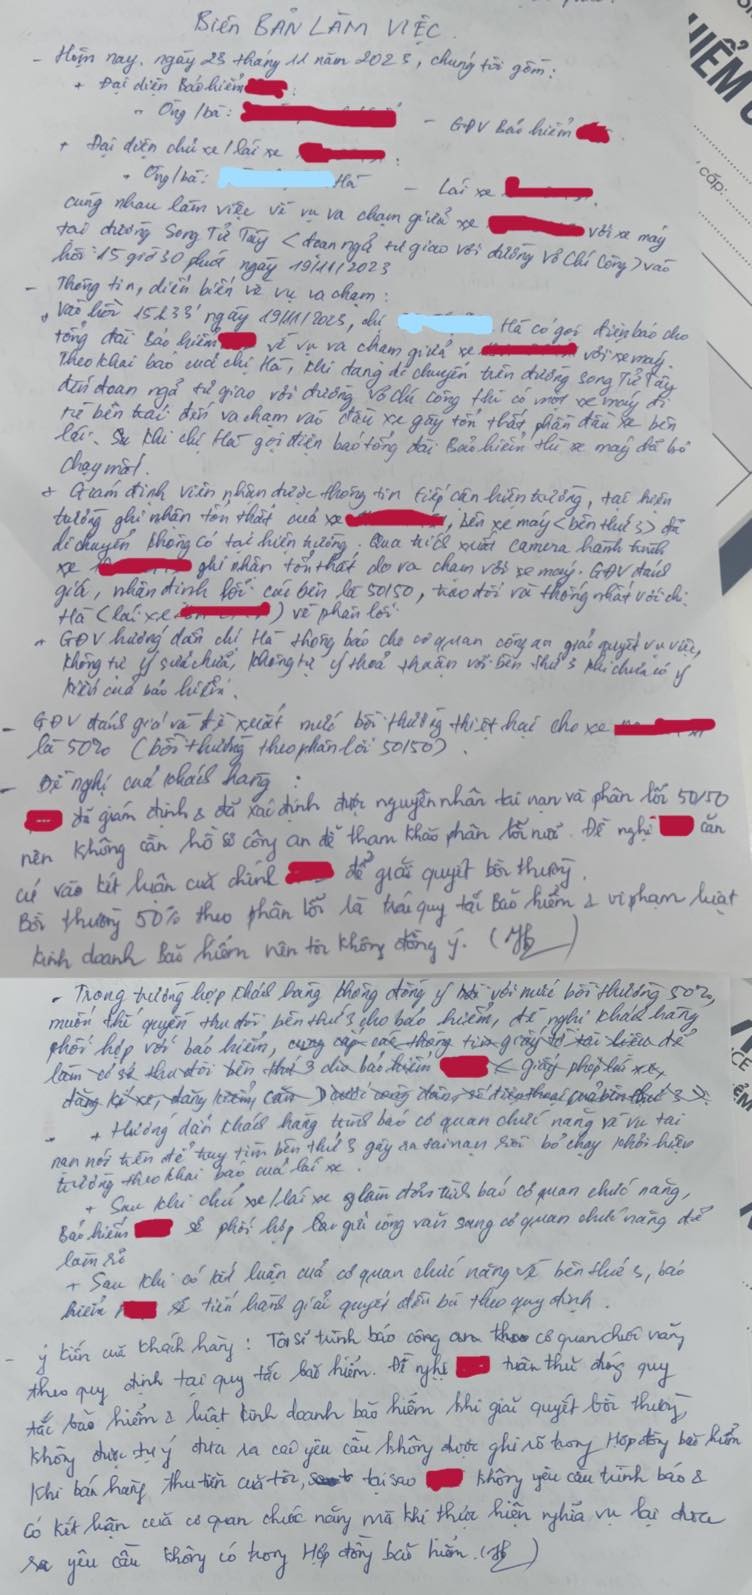 Biên BẢN LÀM VIỆC.
- Hôm nay, ngày 23 tháng 11 năm 2023, chúng tôi gồm:
+ Đại diện Bảo hiểm :
- Ông/bà: - GĐV Bảo hiểm
+ Đại diện chủ xe/lái xe .
• Ông/bà: Hà - Lái xe .
cùng nhau làm việc về vụ va chạm giữa xe với xe máy
tại đường Song Tử Tây <đoạn ngã tư giao với đường Võ Chí Công> vào
hồi 15 giờ 30 phút ngày 19/11/2023
- Thông tin, diễn biến về vụ va chạm:
+ Vào hồi 15h33' ngày 19/11/2023, chị Hà có gọi điện báo cho
tổng đài Bảo hiểm về vụ va chạm giữa xe với xe máy
Theo khai báo của chị Hà, khi đang di chuyển trên đường Song Tử Tây
đến đoạn ngã tư giao với đường Võ Chí Công thì có một xe máy đi
từ bên trái đến va chạm vào đầu xe gây tổn thất phần đầu xe bên
lái. Su khi chị Hà gọi điện báo tổng đài Bảo hiểm thì xe máy đã bỏ
chạy mất.
+ Giám định viên nhận được thông tin tiếp cận hiện trường, tại hiện
trường ghi nhận tổn thất của xe , bên xe máy <bên thứ 3> đã
di chuyển không có tại hiện trường. Qua trích xuất camera hành trình
xe ghi nhận tổn thất do va chạm với xe máy. GĐV đánh
giá, nhận định lỗi các bên là 50/50, trao đổi và thống nhất với chị
Hà (lái xe ) về phần lỗi
+ GĐV hướng dẫn chị Hà thông báo cho cơ quan công an giải quyết vụ việc,
không tự ý sửa chữa, không tự ý thoả thuận với bên thứ 3 khi chưa có ý
kiến của bảo hiểm.
- GĐV đánh giá và đề xuất mức bồi thường thiệt hại cho xe
là 50% (bồi thường theo phần lỗi 50/50).
- Đề nghị của khách hàng :
đã giám định & đã xác định được nguyên nhân tai nạn và phần lỗi 50/50
nên không cần hồ sơ công an để tham khảo phần lỗi nữa. Đề nghị căn
cứ vào kết luận của chính để giải quyết bồi thường.
Bồi thường 50% theo phần lỗi là trái quy tắc Bảo hiểm & vi phạm luật
kinh doanh Bảo hiểm nên tôi không đồng ý.
- Trong trường hợp khách hàng không đồng ý với mức bồi thường 50%,
muốn thế quyền thu đòi bên thứ 3 cho bảo hiểm, đề nghị khách hàng
phối hợp với bảo hiểm, cung cấp các thông tin giấy tờ tài liệu để
làm cơ sở thu đòi bên thứ 3 cho bảo hiểm < Giấy phép lái xe,
đăng ký xe, đăng kiểm, căn cước công dân, số điện thoại của bên thứ 3 >.
+ Hướng dẫn khách hàng trình báo cơ quan chức năng về vụ tai
nạn nói trên để truy tìm bên thứ 3 gây ra tai nạn rồi bỏ chạy khỏi hiện
trường theo khai báo của lái xe.
+ Sau khi chủ xe/lái xe làm đơn trình báo cơ quan chức năng,
Bảo hiểm sẽ phối hợp gửi công văn sang cơ quan chức năng để
làm rõ
+ Sau khi có kết luận của cơ quan chức năng về bên thứ 3, bảo
hiểm sẽ tiến hành giải quyết đền bù theo quy định.
- Ý kiến của khách hàng: Tôi sẽ trình báo công an theo cơ quan chức năng
theo quy định tại quy tắc bảo hiểm. Đề nghị tuân thủ đúng quy
tắc bảo hiểm & luật kinh doanh bảo hiểm khi giải quyết bồi thường,
không được tự ý đưa ra các yêu cầu không được ghi rõ trong Hợp đồng bảo hiểm
Khi bán hàng thu tiền của tôi, tại sao không yêu cầu trình báo &
có kết luận của cơ quan chức năng mà khi thực hiện nghĩa vụ lại đưa
ra yêu cầu không có trong Hợp đồng bảo hiểm.